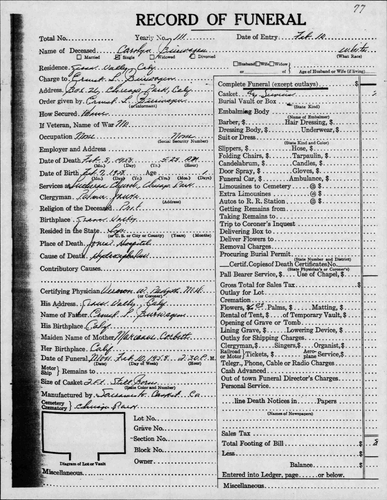 77
RECORD OF FUNERAL
Total No. Yearly No. 111 Date of Entry Feb. 10
Name of Deceased Carolyn white
Married Single Widowed Divorced Husband Wife Widow (What Race)
of Age of Husband or Wife (if living)
Residence Grass Valley, Calif
Charge to Ernest L.
Address Box Chicago Park, Calif
Order given by Ernest L.
How Secured
If Veteran, Name of War No
Occupation None None
(Social Security Number)
Employer and Address
Date of Death Feb. 1958
(Mo.) (Day) (Yr.) (Hour)
Date of Birth Feb. 1958 Age 1
(Mo.) (Day) (Yr.)
Services at Church, Chicago Park
Clergyman
Religion of the Deceased Prot.
Birthplace Grass Valley
Resided in the State
(or U.S. or City or County) (Years) (Months)
Place of Death Jones Hospital
Cause of Death
Contributory Causes
Certifying Physician M.D.
(or Coroner)
His Address Grass Valley, Calif
Name of Father Ernest L.
His Birthplace Calif
Maiden Name of Mother Corbett
Her Birthplace Calif
Date of Funeral Mon. Feb. 10, 1958 2:30 P.M.
Motor Ship Remains to
Size of Casket Still Born
(State Color and Number)
Manufactured by Sacramento Casket Co.
Cemetery
Crematory Chicago Park
Lot No.
Grave No.
Section No.
Block No.
Owner
Diagram of Lot or Vault
Miscellaneous
Complete Funeral (except outlays) $
Casket
Burial Vault or Box
(State Kind)
Embalming Body
(Name of Embalmer)
Barber, $ Hair Dressing, $
Dressing Body, $ Underwear, $
Suit or Dress
(State Kind and Color)
Slippers, $ Hose, $
Folding Chairs, $ Tarpaulin, $
Candelabrum, $ Candles, $
Door Spray, $ Gloves, $
Funeral Car, $ Ambulance, $
Limousines to Cemetery @ $
Extra Limousines @ $
Autos to R. R. Station @ $
Getting Remains from
Taking Remains to
Trip to Coroner's Inquest
Delivering Box to
Deliver Flowers to
Removal Charges
Procuring Burial Permit
(State Number and District)
Certf. Copies of Death Certificates No.
(State Physician's or Coroner's)
Pall Bearer Service, Use of Chapel, $
Gross Total for Sales Tax $
Outlay for Lot
Cremation
Flowers, $ Palms, $ Matting, $
Rental of Tent, $ of Temporary Vault, $
Opening of Grave or Tomb
Lining Grave, $ Lowering Device, $
Outlay for Shipping Charges
Clergyman, $ Singers, $ Organist, $
Railroad or Motor Tickets, $ Aero-plane Service, $
Teleg., Phone, Cable or Radio Charges
Cash Advanced
Out of town Funeral Director's Charges
Personal Service
line Death Notices in Papers
(Names of Newspapers)
Sales Tax
Total Footing of Bill $
Less
Balance $
Entered into Ledger, page or below.
Miscellaneous